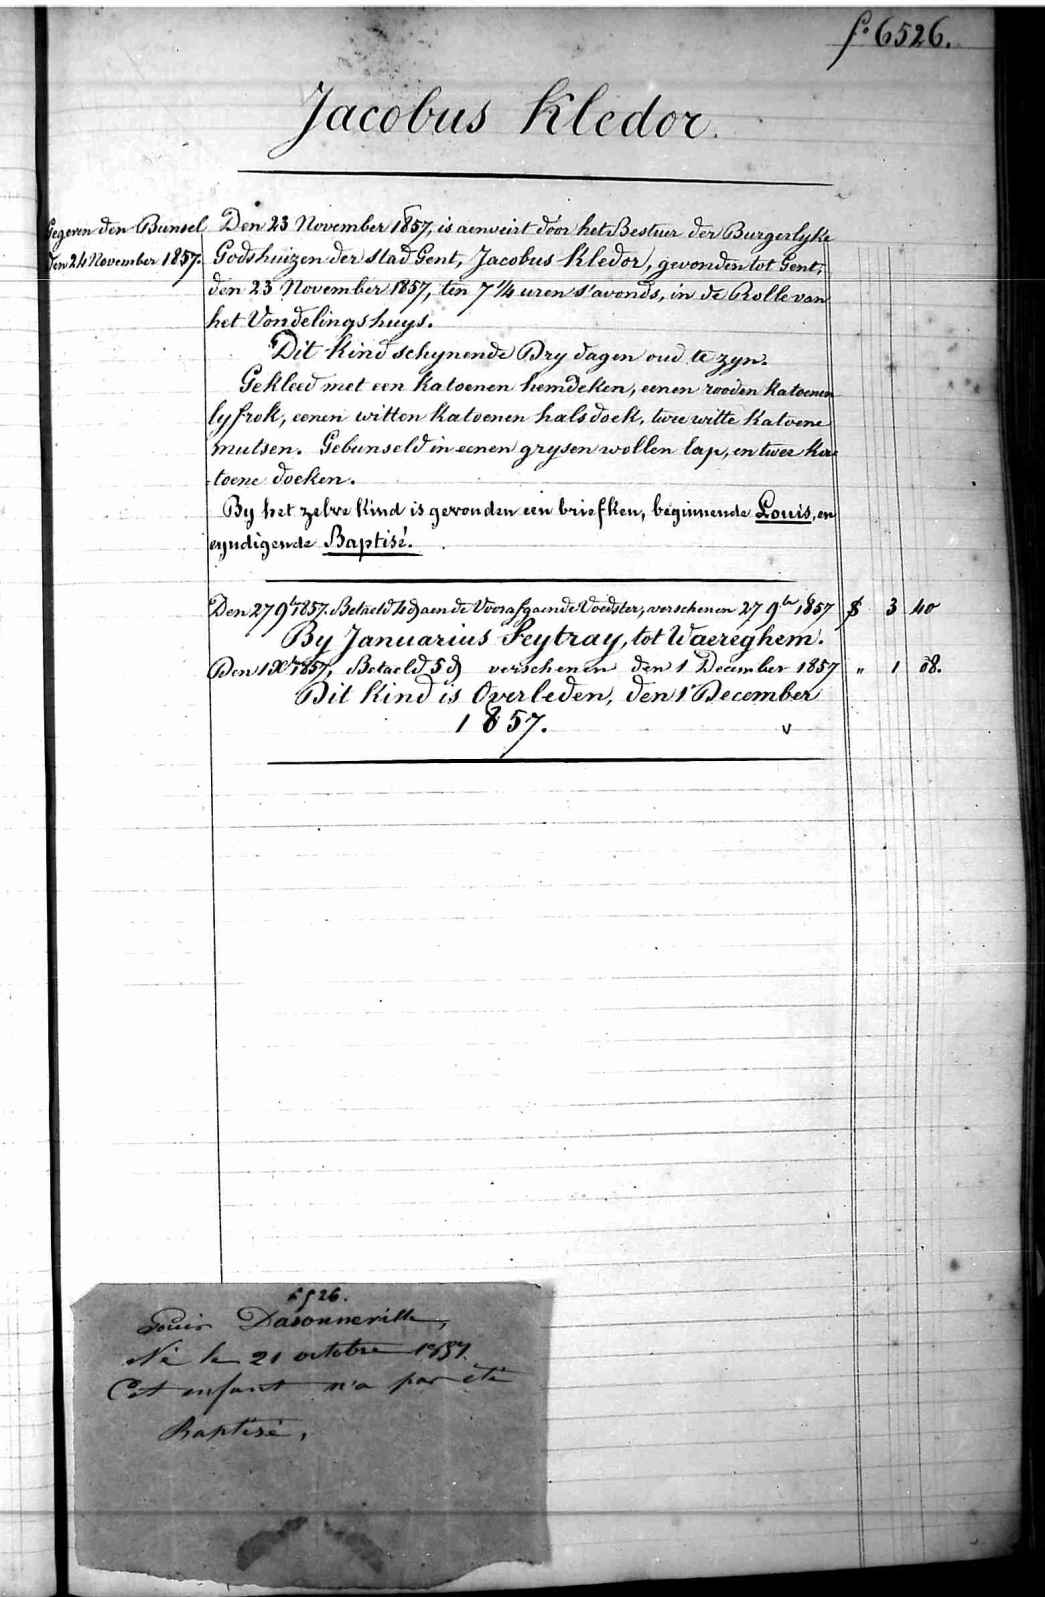 f° 6526.
Jacobus Kledor.
Gegeven den Bunsel
den 24 November 1857.
Den 23 November 1857, is aenveirt door het Bestuur der Burgerlyke
Godshuizen der stad Gent, Jacobus Kledor, gevonden tot Gent,
den 23 November 1857, ten 7 1/4 uren s'avonds, in de Rolle van
het Vondelingshuys.
Dit Kind schynende Dry dagen oud te zyn.
Gekleed met een katoenen hemdeken, eenen rooden katoenen
lyfrok, eenen witten katoenen halsdoek, twee witte katoene
mutsen. Gebunseld in eenen grysen wollen lap, en twee ka-
toene doeken.
By het zelve kind is gevonden een briefken, beginnende Louis, en
eyndigende Baptisé.
Den 27 9b 1857. Betaeld 4 d aen de Voorafgaende Voedster, verschenen 27 9br 1857 $ 3 40
By Januarius Feytray, tot Waereghem.
Den 1 Xb 1857, Betaeld 5 d verschenen den 1 December 1857 " 1 08.
Dit kind is Overleden, den 1 December
1857. v
6526.
Louis Dasonneville,
Né le 21 octobre 1857.
Cet enfant n'a pas été
Baptisé,